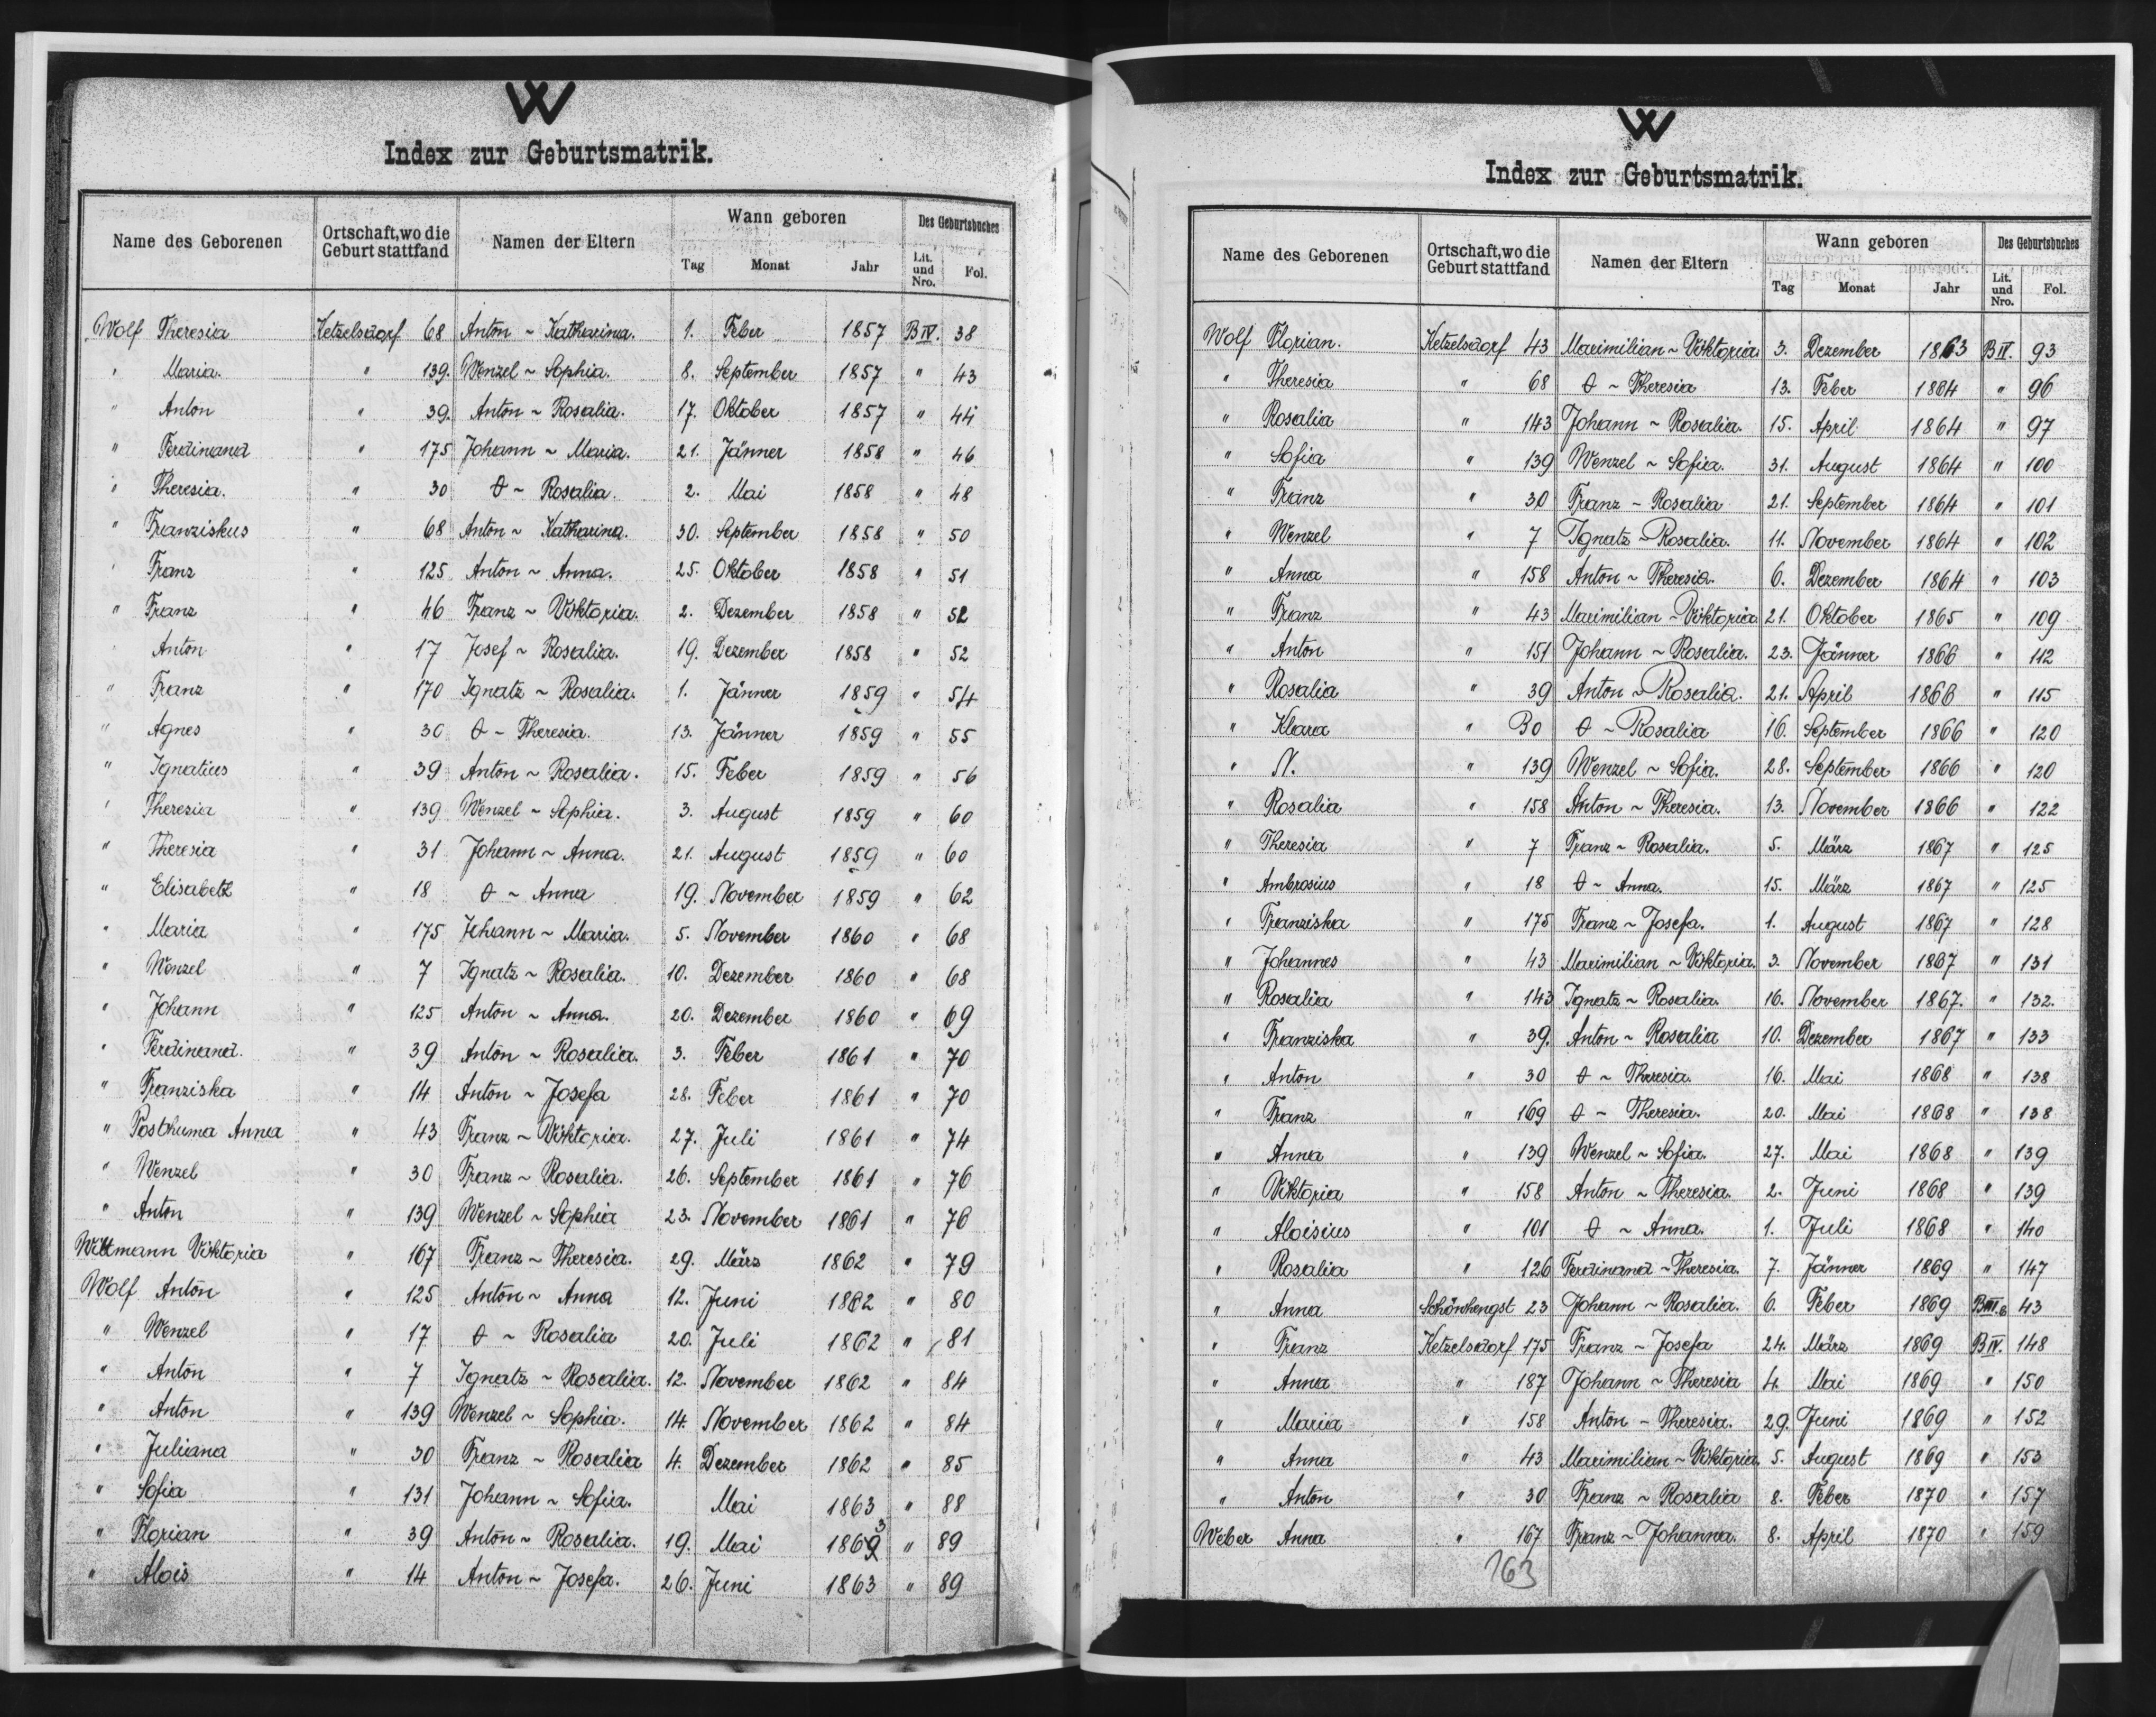 W
Index zur Geburtsmatrik.
Name des Geborenen | Ortschaft, wo die Geburt stattfand | Namen der Eltern | Wann geboren | Des Geburtsbuches
Tag | Monat | Jahr | Lit. und Nro. | Fol.
Wolf Theresia Ketzelsdorf 68 Anton ~ Katharina. 1. Feber 1857 B IV. 38
" Maria. " 139. Wenzel ~ Sophia. 8. September 1857 " 43
" Anton " 39. Anton ~ Rosalia. 17. Oktober 1857 " 44
" Ferdinand " 175 Johann ~ Maria. 21. Jänner 1858 " 46
" Theresia. " 30 θ ~ Rosalia. 2. Mai 1858 " 48
" Franziskus " 68 Anton ~ Katharina. 30. September 1858 " 50
" Franz " 125 Anton ~ Anna. 25. Oktober 1858 " 51
" Franz " 46 Franz ~ Viktoria. 2. Dezember 1858 " 52
" Anton " 17 Josef ~ Rosalia. 19. Dezember 1858 " 52
" Franz " 170 Ignatz ~ Rosalia. 1. Jänner 1859 " 54
" Agnes " 30 θ ~ Theresia. 13. Jänner 1859 " 55
" Ignatius " 39 Anton ~ Rosalia. 15. Feber 1859 " 56
" Theresia " 139 Wenzel ~ Sophia. 3. August 1859 " 60
" Theresia " 31 Johann ~ Anna. 21. August 1859 " 60
" Elisabeth " 18 θ ~ Anna 19. November 1859 " 62
" Maria " 175 Johann ~ Maria. 5. November 1860 " 68
" Wenzel " 7 Ignatz ~ Rosalia. 10. Dezember 1860 " 68
" Johann " 125 Anton ~ Anna. 20. Dezember 1860 " 69
" Ferdinand. " 39 Anton ~ Rosalia. 3. Feber 1861 " 70
" Franziska " 14 Anton ~ Josefa 28. Feber 1861 " 70
" Posthuma Anna " 43 Franz ~ Viktoria. 27. Juli 1861 " 74
" Wenzel " 30 Franz ~ Rosalia. 26. September 1861 " 76
" Anton " 139 Wenzel ~ Sophia 23. November 1861 " 76
Wittmann Viktoria " 167 Franz ~ Theresia. 29. März 1862 " 79
Wolf Anton " 125 Anton ~ Anna 12. Juni 1862 " 80
" Wenzel " 17 θ ~ Rosalia 20. Juli 1862 " 81
" Anton " 7 Ignatz ~ Rosalia. 12. November 1862 " 84
" Anton " 139 Wenzel ~ Sophia. 14. November 1862 " 84
" Juliana " 30 Franz ~ Rosalia 4. Dezember 1862 " 85
" Sofia " 131 Johann ~ Sofia. Mai 1863 " 88
" Florian " 39 Anton ~ Rosalia. 19. Mai 1863 " 89
" Alois " 14 Anton ~ Josefa. 26. Juni 1863 " 89
W
Index zur Geburtsmatrik.
Name des Geborenen | Ortschaft, wo die Geburt stattfand | Namen der Eltern | Wann geboren | Des Geburtsbuches
Tag | Monat | Jahr | Lit. und Nro. | Fol.
Wolf Florian. Ketzelsdorf 43 Maximilian ~ Viktoria 3. Dezember 1863 B IV. 93
" Theresia " 68 θ ~ Theresia 13. Feber 1864 " 96
" Rosalia " 143 Johann ~ Rosalia. 15. April 1864 " 97
" Sofia " 139 Wenzel ~ Sofia. 31. August 1864 " 100
" Franz " 30 Franz ~ Rosalia 21. September 1864 " 101
" Wenzel " 7 Ignatz ~ Rosalia. 11. November 1864 " 102
" Anna " 158 Anton ~ Theresia. 6. Dezember 1864 " 103
" Franz " 43 Maximilian ~ Viktoria 21. Oktober 1865 " 109
" Anton " 151 Johann ~ Rosalia. 23. Jänner 1866 " 112
" Rosalia " 39 Anton ~ Rosalia. 21. April 1866 " 115
" Klara " 30 θ ~ Rosalia 16. September 1866 " 120
" N. " 139 Wenzel ~ Sofia. 28. September 1866 " 120
" Rosalia " 158 Anton ~ Theresia. 13. November 1866 " 122
" Theresia " 7 Franz ~ Rosalia. 5. März 1867 " 125
" Ambrosius " 18 θ ~ Anna. 15. März 1867 " 125
" Franziska " 175 Franz ~ Josefa. 1. August 1867 " 128
" Johannes " 43 Maximilian ~ Viktoria. 3. November 1867 " 131
" Rosalia " 143 Ignatz ~ Rosalia. 16. November 1867. " 132.
" Franziska " 39. Anton ~ Rosalia 10. Dezember 1867 " 133
" Anton " 30 θ ~ Theresia. 16. Mai 1868 " 138
" Franz " 169 θ ~ Theresia. 20. Mai 1868 " 138
" Anna " 139 Wenzel ~ Sofia. 27. Mai 1868 " 139
" Viktoria " 158 Anton ~ Theresia. 2. Juni 1868 " 139
" Aloisius " 101 θ ~ Anna. 1. Juli 1868 " 140
" Rosalia " 126 Ferdinand ~ Theresia. 7. Jänner 1869 " 147
" Anna Schönhengst 23 Johann ~ Rosalia. 6. Feber 1869 B III. 43
" Franz Ketzelsdorf 175 Franz ~ Josefa 24. März 1869 B IV. 148
" Anna " 187 Johann ~ Theresia 4. Mai 1869 " 150
" Maria " 158 Anton ~ Theresia. 29. Juni 1869 " 152
" Anna " 43 Maximilian ~ Viktoria. 5. August 1869 " 153
" Anton " 30 Franz ~ Rosalia 8. Feber 1870 " 157
Weber Anna " 167 Franz ~ Johanna. 8. April 1870 " 159
163